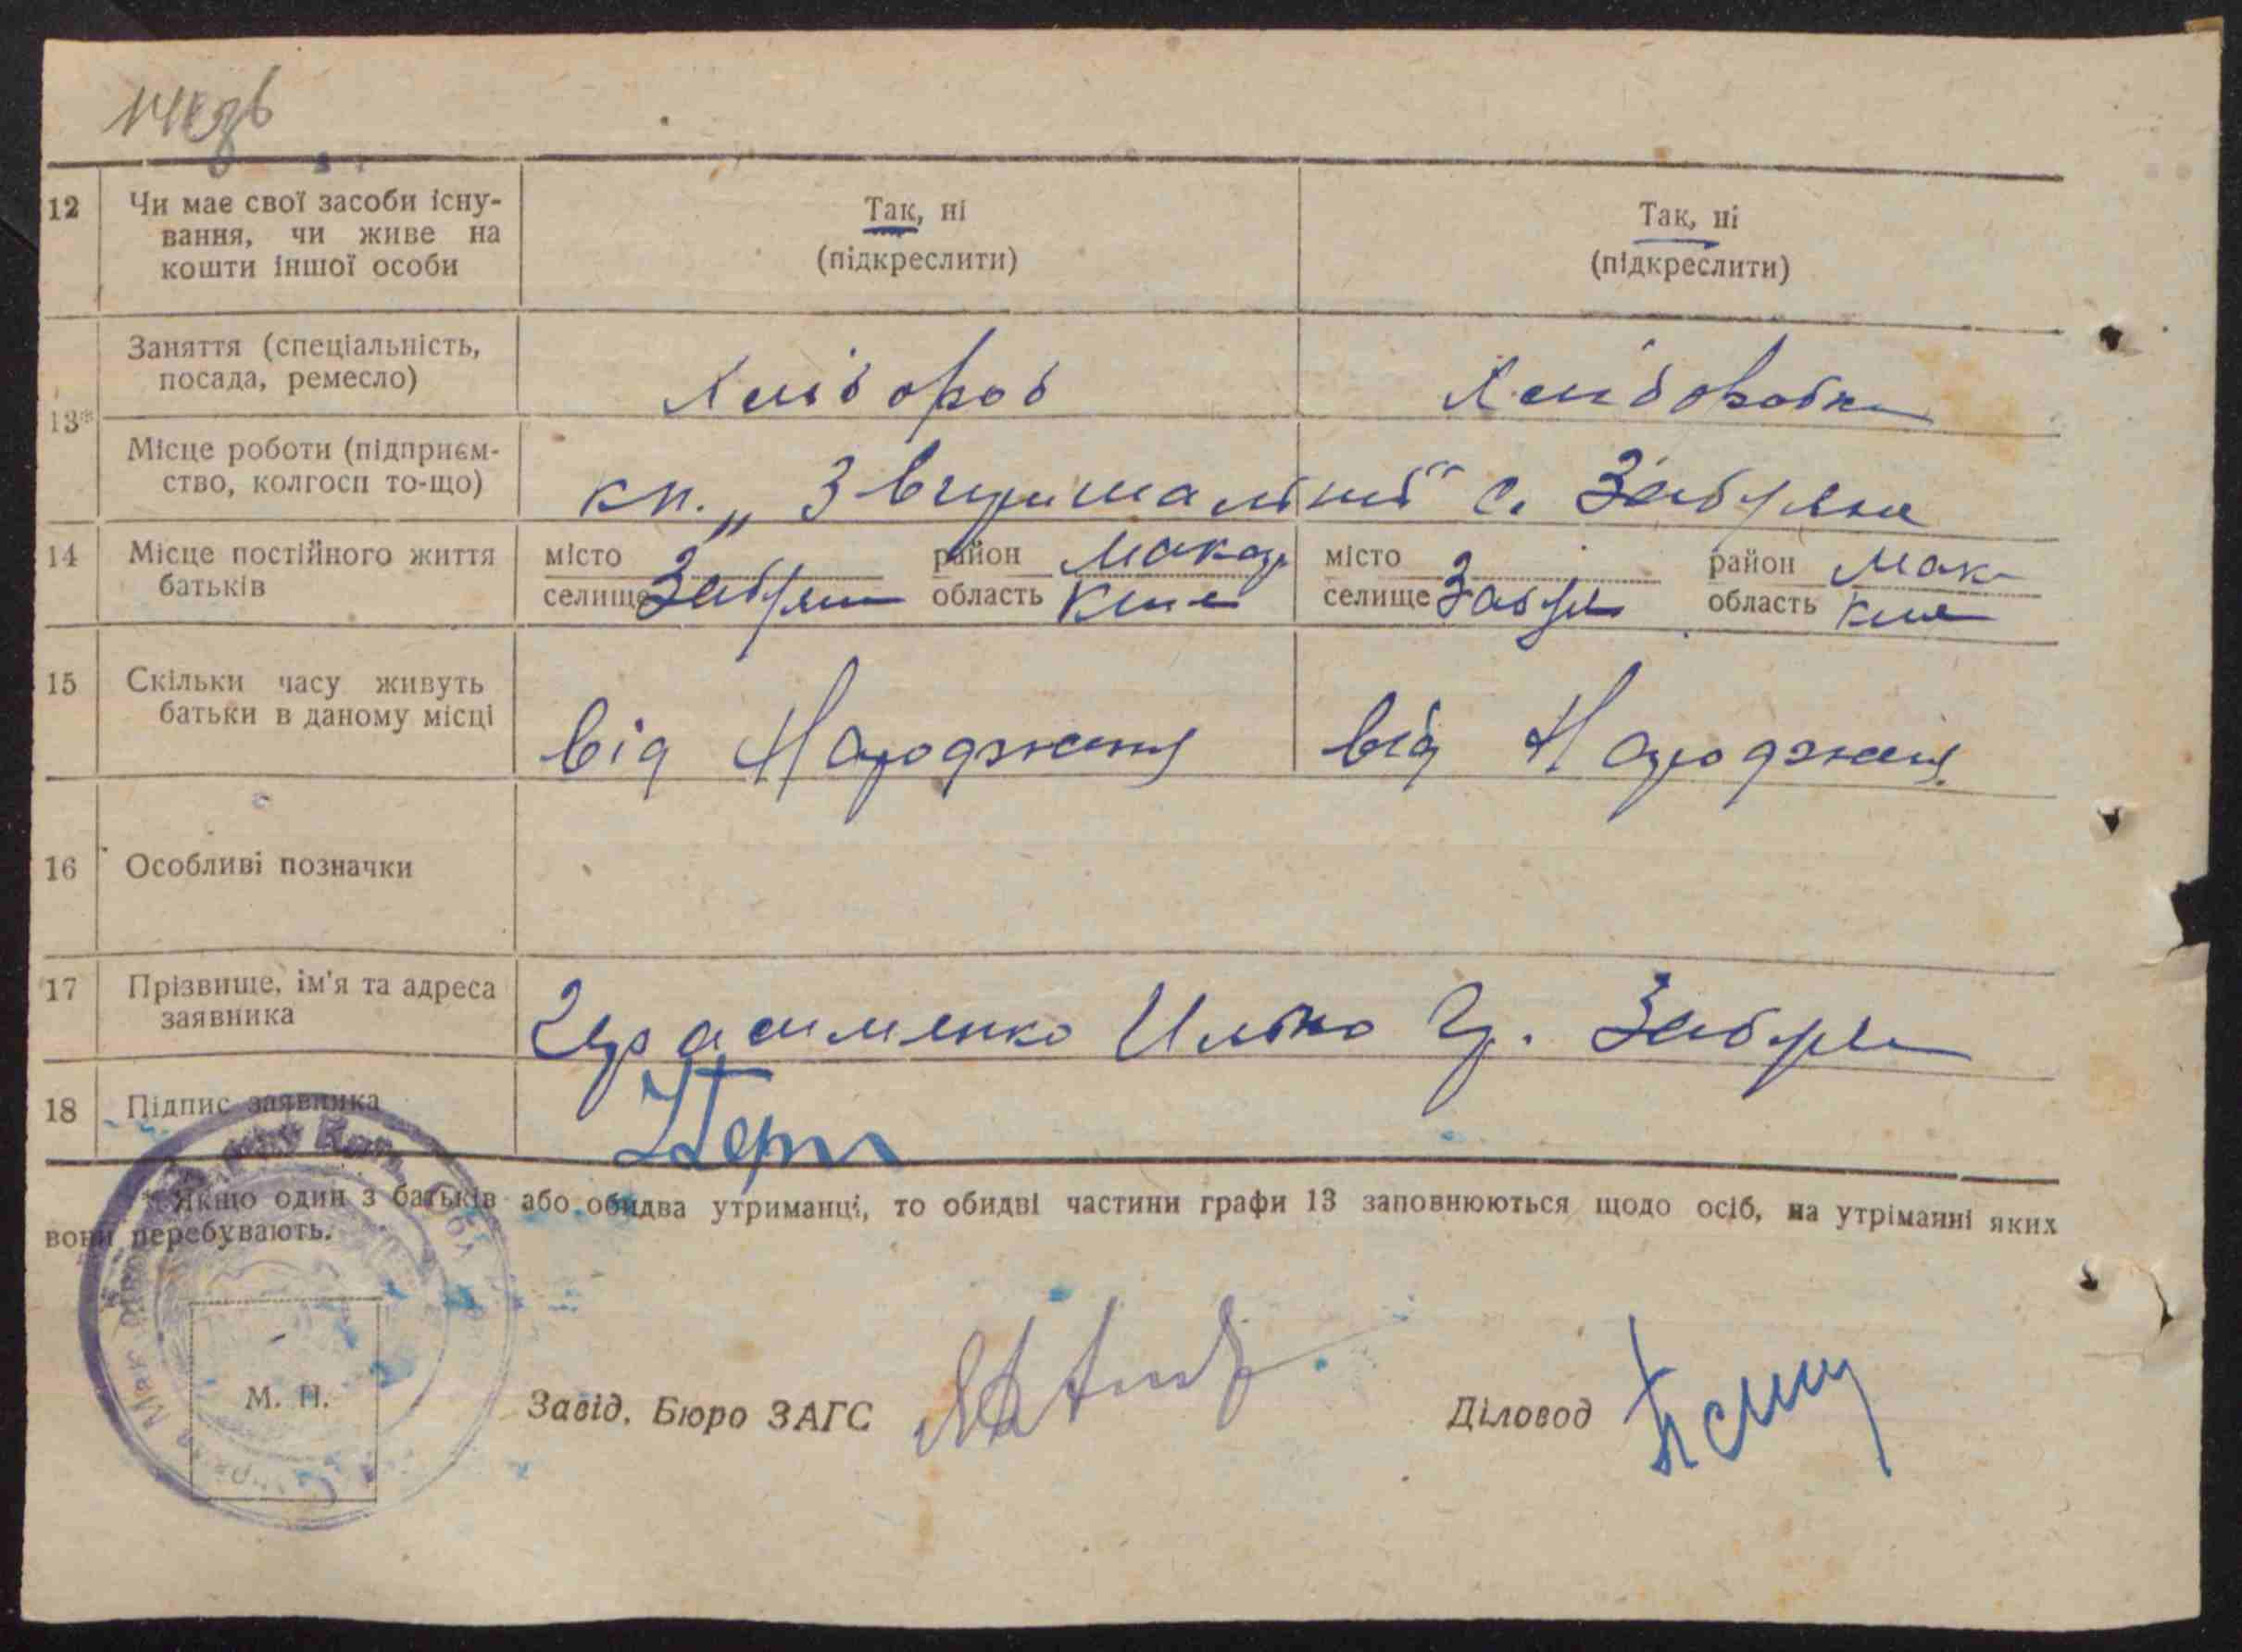 12 Чи має свої засоби існу-
вання, чи живе на
кошти іншої особи
Так, ні
(підкреслити)
Так, ні
(підкреслити)
13*
Заняття (спеціальність,
посада, ремесло)
Хлібороб
Хліборобка
Місце роботи (підприєм-
ство, колгосп то-що)
кп. „ с. Забуяня
14 Місце постійного життя
батьків
місто
селище Забуян
район Макар
область Киє
місто
селище Забуя
район Мак
область Киє
15 Скільки часу живуть
батьки в даному місці
від Народження
від Народженя
16 Особливі позначки
17 Прізвище, ім'я та адреса
заявника
Герасименко Илько Гр. Забуя
18 Підпис заявника
* Якщо один з батьків або обидва утриманці, то обидві частини графи 13 заповнюються щодо осіб, на утріманні яких
вони перебувають.
М. П.
Завід. Бюро ЗАГС
Діловод